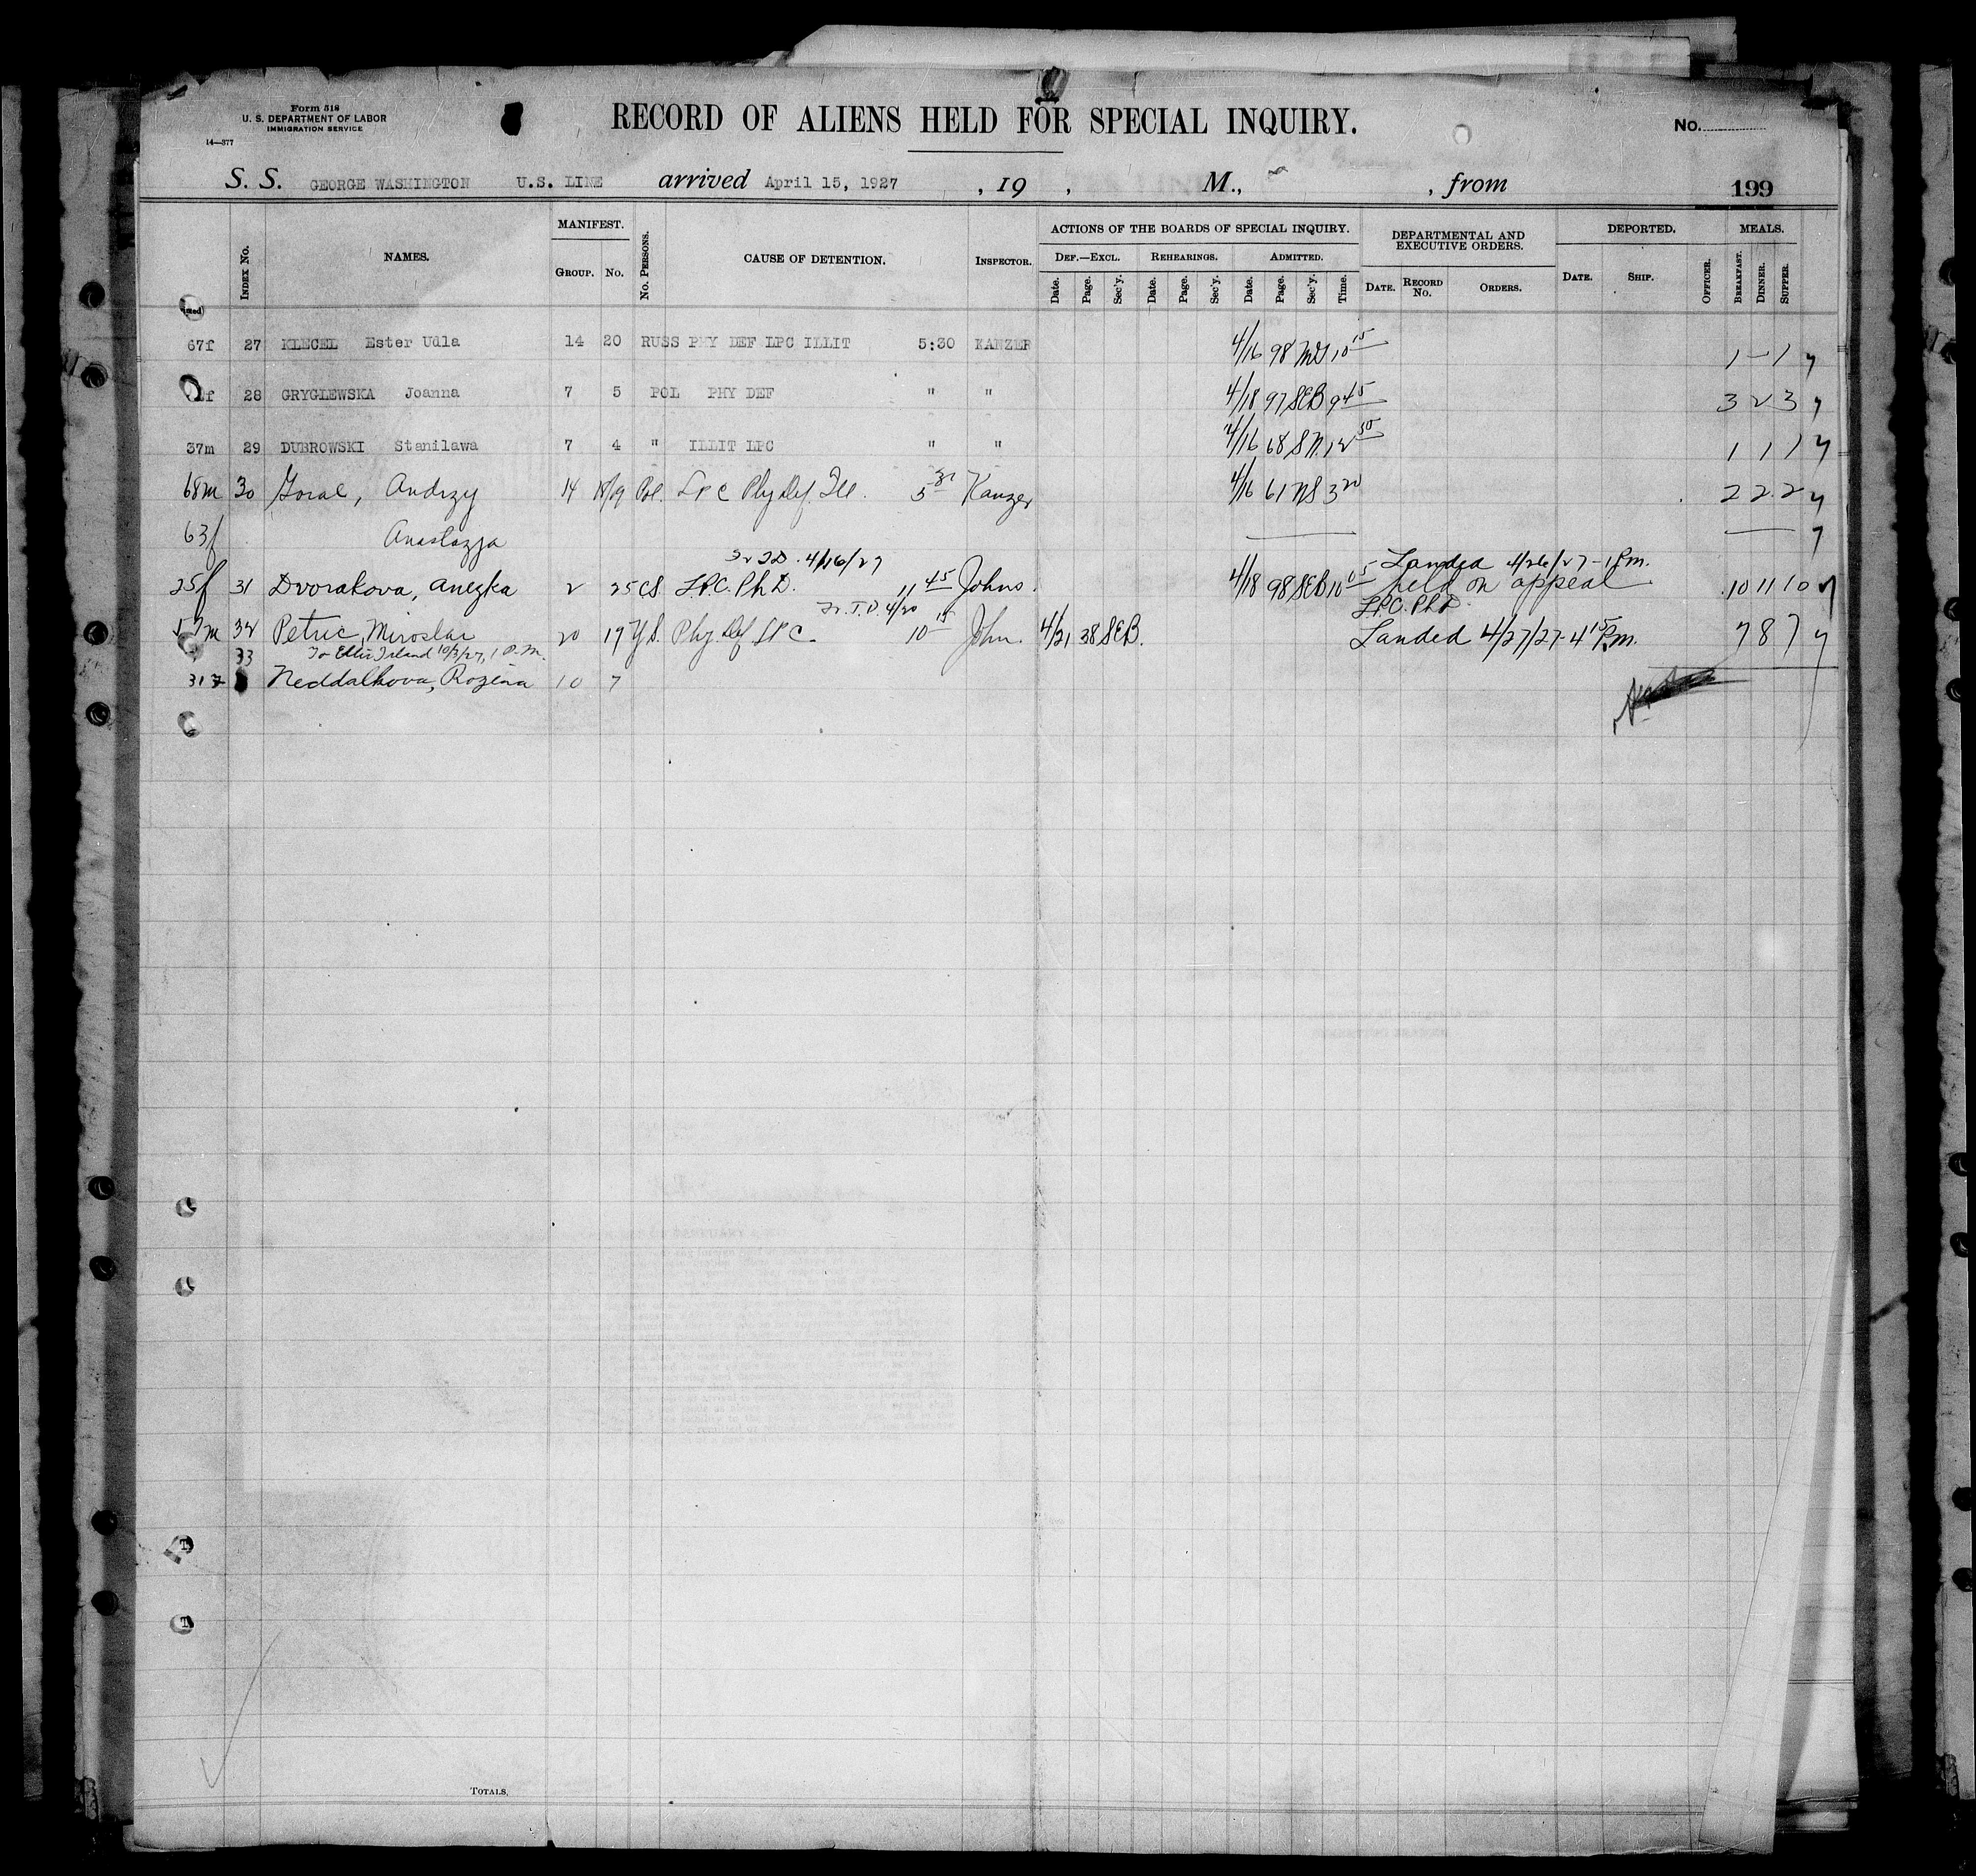 Form 518
U. S. DEPARTMENT OF LABOR
IMMIGRATION SERVICE
14—377
RECORD OF ALIENS HELD FOR SPECIAL INQUIRY.
No.
S. S. GEORGE WASHINGTON U.S. LINE arrived April 15, 1927 , 19 , M., , from 199
INDEX No. NAMES. MANIFEST. GROUP. No. No. PERSONS. CAUSE OF DETENTION. INSPECTOR. ACTIONS OF THE BOARDS OF SPECIAL INQUIRY. DEF.—EXCL. Date. Page. Sec'y. REHEARINGS. Date. Page. Sec'y. ADMITTED. Date. Page. Sec'y. Time. DEPARTMENTAL AND EXECUTIVE ORDERS. DATE. RECORD No. ORDERS. DEPORTED. DATE. SHIP. OFFICER. MEALS. BREAKFAST. DINNER. SUPPER.
67f 27 KLECEL Ester Udla 14 20 RUSS PHY DEF LPC ILLIT 5:30 KANZER 4/16 98 10 15 1 - 1
f 28 GRYGLEWSKA Joanna 7 5 POL PHY DEF " " 4/18 97 SEB 9 45 3 2 3
37m 29 DUBROWSKI Stanilawa 7 4 " ILLIT LPC " " 4/16 68 S N. 12 50 1 1 1
68m 30 Goral, Andrzy 14 18/19 Pol. LPC Phy Def. Ill. 5 30 Kanzer 4/16 61 NS 3 20 2 2 2
63f Anastazja
4/16/27 Landed 4/26/27 - 1 P.m.
25f 31 Dvorakova, Anezka 2 25 CS. LPC. Ph D. 11 45 Johns. 4/18 98 SEB 10 05 held on appeal 10 11 10
T.D. 4/20 LPC. Ph D.
m 32 Petric, Miroslav 20 19 Y.S. Phy. Def LPC. 10 15 John. 4/21 38 SEB. Landed 4/27/27 - 4 15 P.m. 7 8 7
33 To Ellis Island 10/3/27, 1 P.M.
31 Neddalkova, Rozina 10 7
TOTALS.